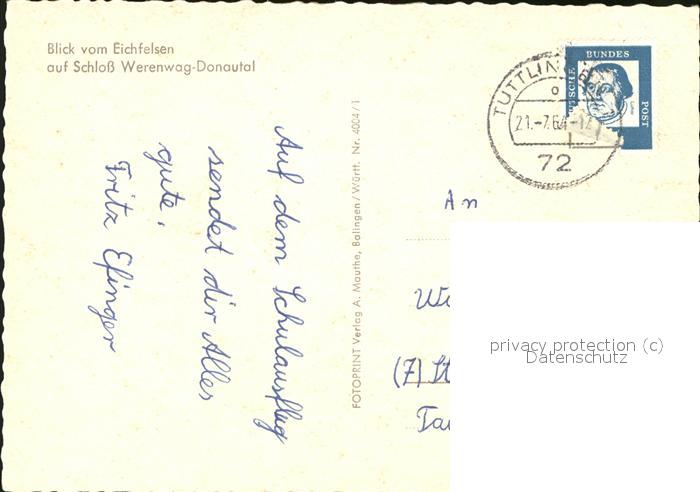 Blick vom Eichfelsen
auf Schloß Werenwag-Donautal
Auf dem Schulausflug
sendet dir Alles
gute,
Fritz Efinger
FOTOPRINT Verlag A. Mauthe, Balingen/Württ. Nr. 4004/1
TUTTLIN
21.-7.64-17
72
DEUTSCHE
BUNDES
POST
An
(7)
privacy protection (c)
Datenschutz